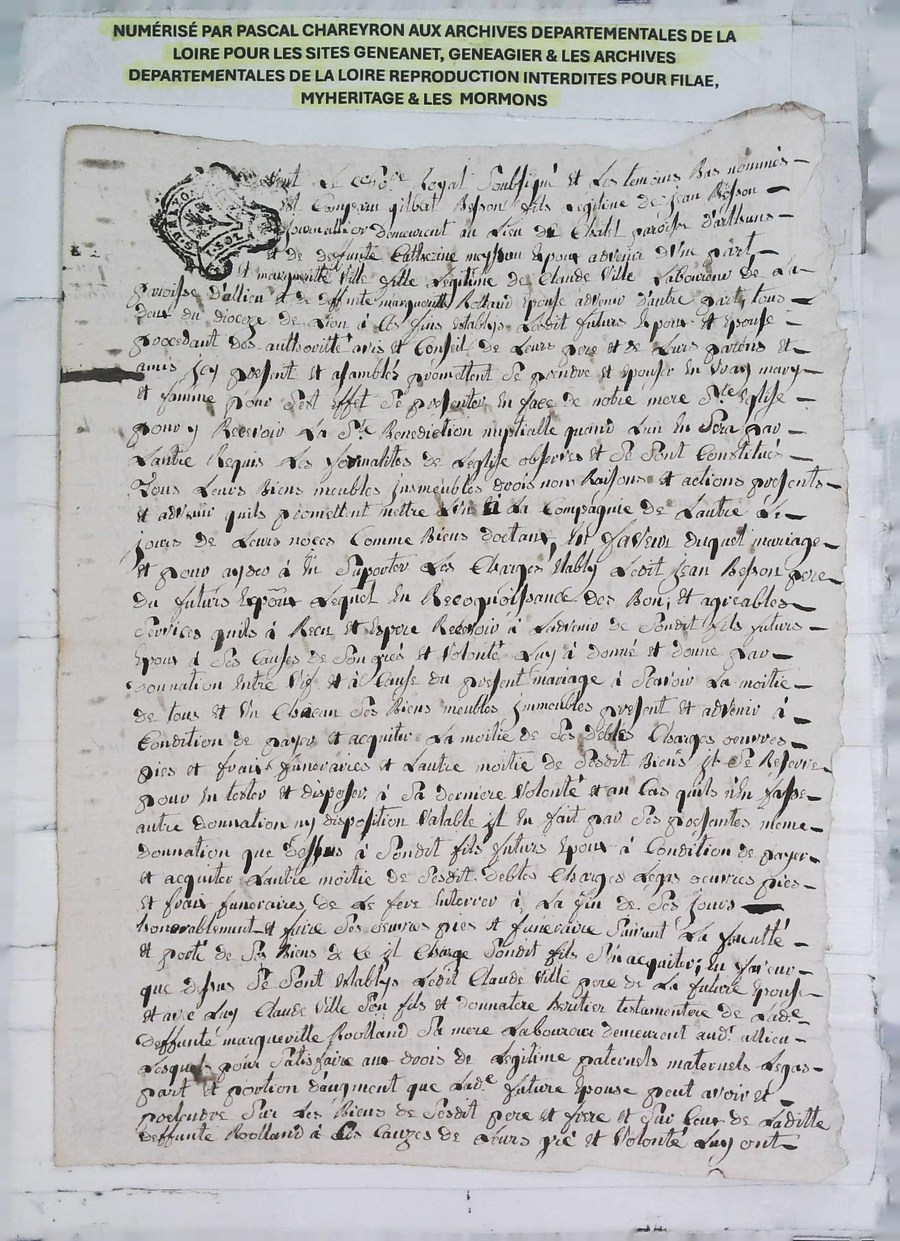 NUMÉRISÉ PAR PASCAL CHAREYRON AUX ARCHIVES DEPARTEMENTALES DE LA
LOIRE POUR LES SITES GENEANET, GENEAGIER & LES ARCHIVES
DEPARTEMENTALES DE LA LOIRE REPRODUCTION INTERDITES POUR FILAE,
MYHERITAGE & LES MORMONS
Le royal Soubsigné et Les temoins Bas nommés
est Comparu gilbert Besson fils Legitime de jean Besson
journallier demeurent au Lieu de paroisse d'arthuns
et de deffunte Catherine Epoux advenir d'une part
Et marguerite Ville fille Legitime de Claude Ville Laboureur de La
paroisse d'allieu et de deffunte margueritte Rolland Epouse advenir d'autre part, tous
deux du dioceze de Lion à Ces fins Establys Lesdit futurs Epoux et Epouse
procedant des authorité avis et Conseil de Leurs pere et de Leurs parens et
amis Jcy present et asemblés promettent Se prendre et Epouser En vray mary
et famme pour Set Effet Se presenter En face de notre mere Ste Eglise
pour y Recevoir La Ste Benediction nuptialle quand L'un En Sera par
Lautre Requis Les formalites de Leglise observes et Se Sont Constitués
Tous Leurs Biens meubles jnsmeubles drois nom Raisons et actions presents
et advenir quils promettent mettre L'un à La Compagnie de Lautre Le
jours de Leurs noces Comme Biens doctaux, En faveur duquel mariage
Et pour ayder à En Suporter Les Charges Etably Ledit jean Besson pere
du futurs Epoux Lequel En Recoquoissance des Bon, et agreables
Services quils à Receu et Espere Recevoir à Ladvenir de Sondit fils futurs
Epoux à Ses Causes de Son grés et Volonté Luy à donné et donne par
donnation Entre Vif et à Cause du present mariage à Scavoir La moitie
de tous et Un Chacun Ses Biens meubles jmmeubles present et advenir à
Condition de payer et acquiter La moitie de Ses debtes Charges oeuvres
pies et frais funeraires et Lautre moitie de Sesdit Biens jl Se Reserve
pour En tester et disposer à Sa derniere Volonté et au Cas quils n'En fasse
autre donnation ny disposition Valable jl En fait par Ses presentes meme
donnation que dessus à Sondit fils futurs Epoux à Condition de payer
et acquiter Lautre moitie de Sesdit debtes Charges Legas oeuvres pies
et frais funeraires de Le fere Enterrer à La fin de Ses jours
honorablement et faire Ses oeuvres pies et funeraire Suivant La faculté
et porté de Ses Biens de Ce jl Charge Sondit fils S'En acquiter; En faveur
que dessus Se Sont Establys Ledit Claude Ville pere de La future Epouse
et avec Luy Claude Ville Son fils et donnatere heritier testamentere de Lade
deffunte Roolland Sa mere Laboureur demeurent aud. allieu
Lesquels pour Satisfaire aux drois de Legitime paternels maternels Legas
part et portion daugment que Lade future Epouse peut avoir et
pretendre Sur Les Biens de Sesdit pere et frere et Sur Ceux de Laditte
deffunte Roolland à Ces Causes de Leurs gré et Volonté Luy ont